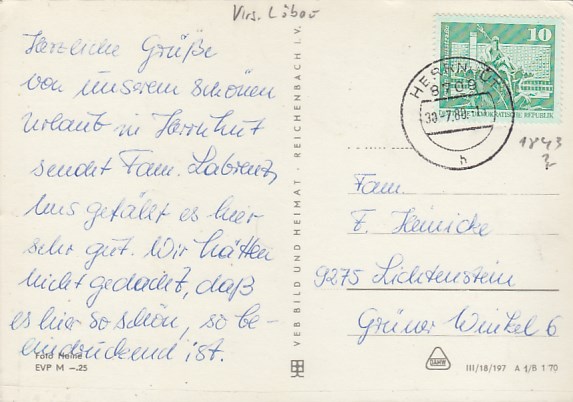 Krs. Löbau
Herzliche Grüße
von unserem schönen
Urlaub in Herrnhut
sendet Fam. Labrenz,
Uns gefällt es hier
sehr gut. Wir hätten
nicht gedacht, daß
es hier so schön, so be-
eindruckend ist.
Foto Heine
EVP M –.25
VEB BILD UND HEIMAT · REICHENBACH I. V.
10
DEMOKRATISCHE REPUBLIK
HERRNHUT
8709
30.-7.80
h
1843
Fam.
E. Heinicke
9275 Lichtenstein
Grüner Winkel 6
III/18/197 A 1/B 1 70